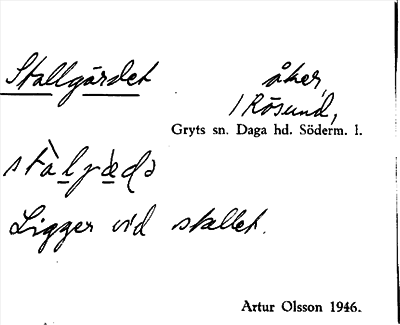 Stallgärdet åker,
i Rösund,
Gryts sn. Daga hd. Söderm. l.
Ligger vid stallet.
Artur Olsson 1946.